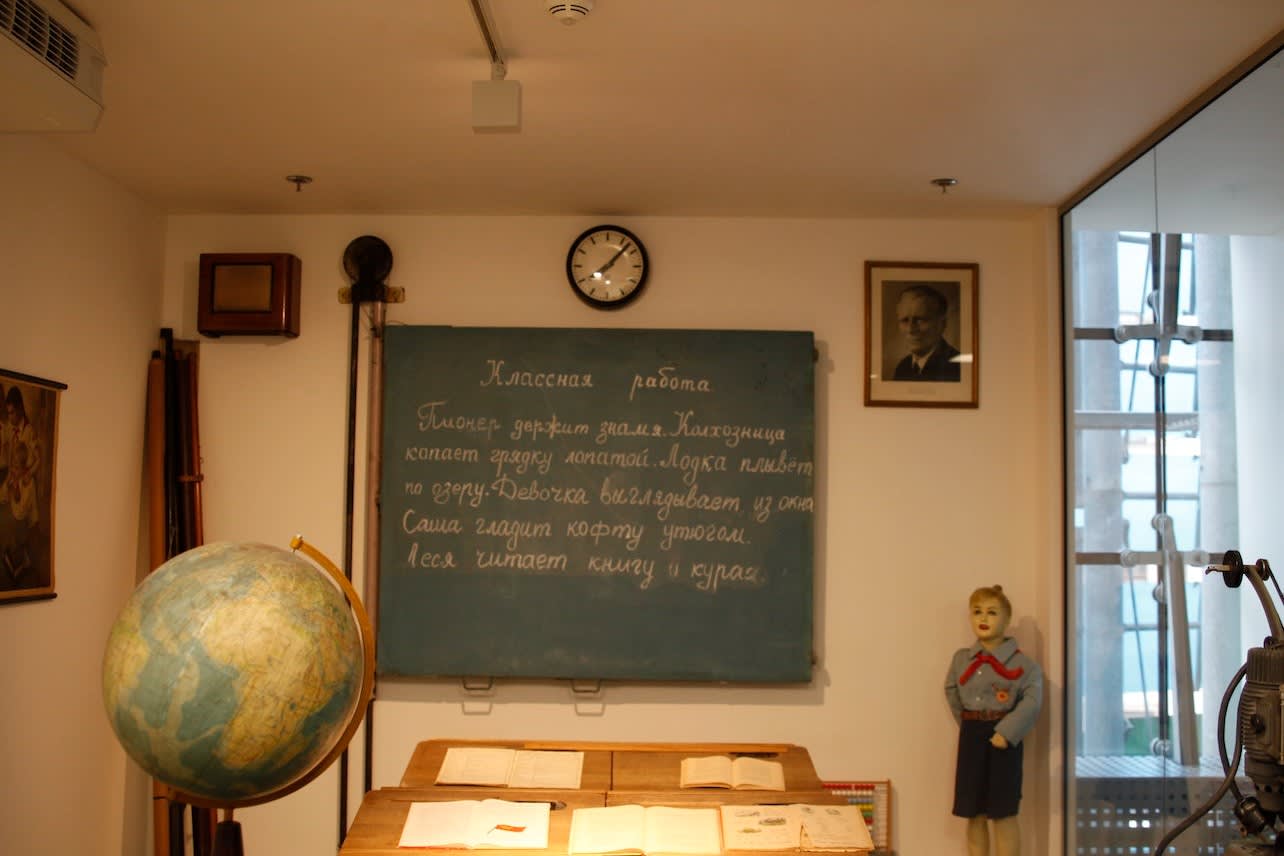 Классная работа
Пионер держит знамя. Колхозница
копает грядку лопатой. Лодка плывёт
по озеру. Девочка выглядывает из окна
Саша гладит кофту утюгом.
Леся читает книгу и